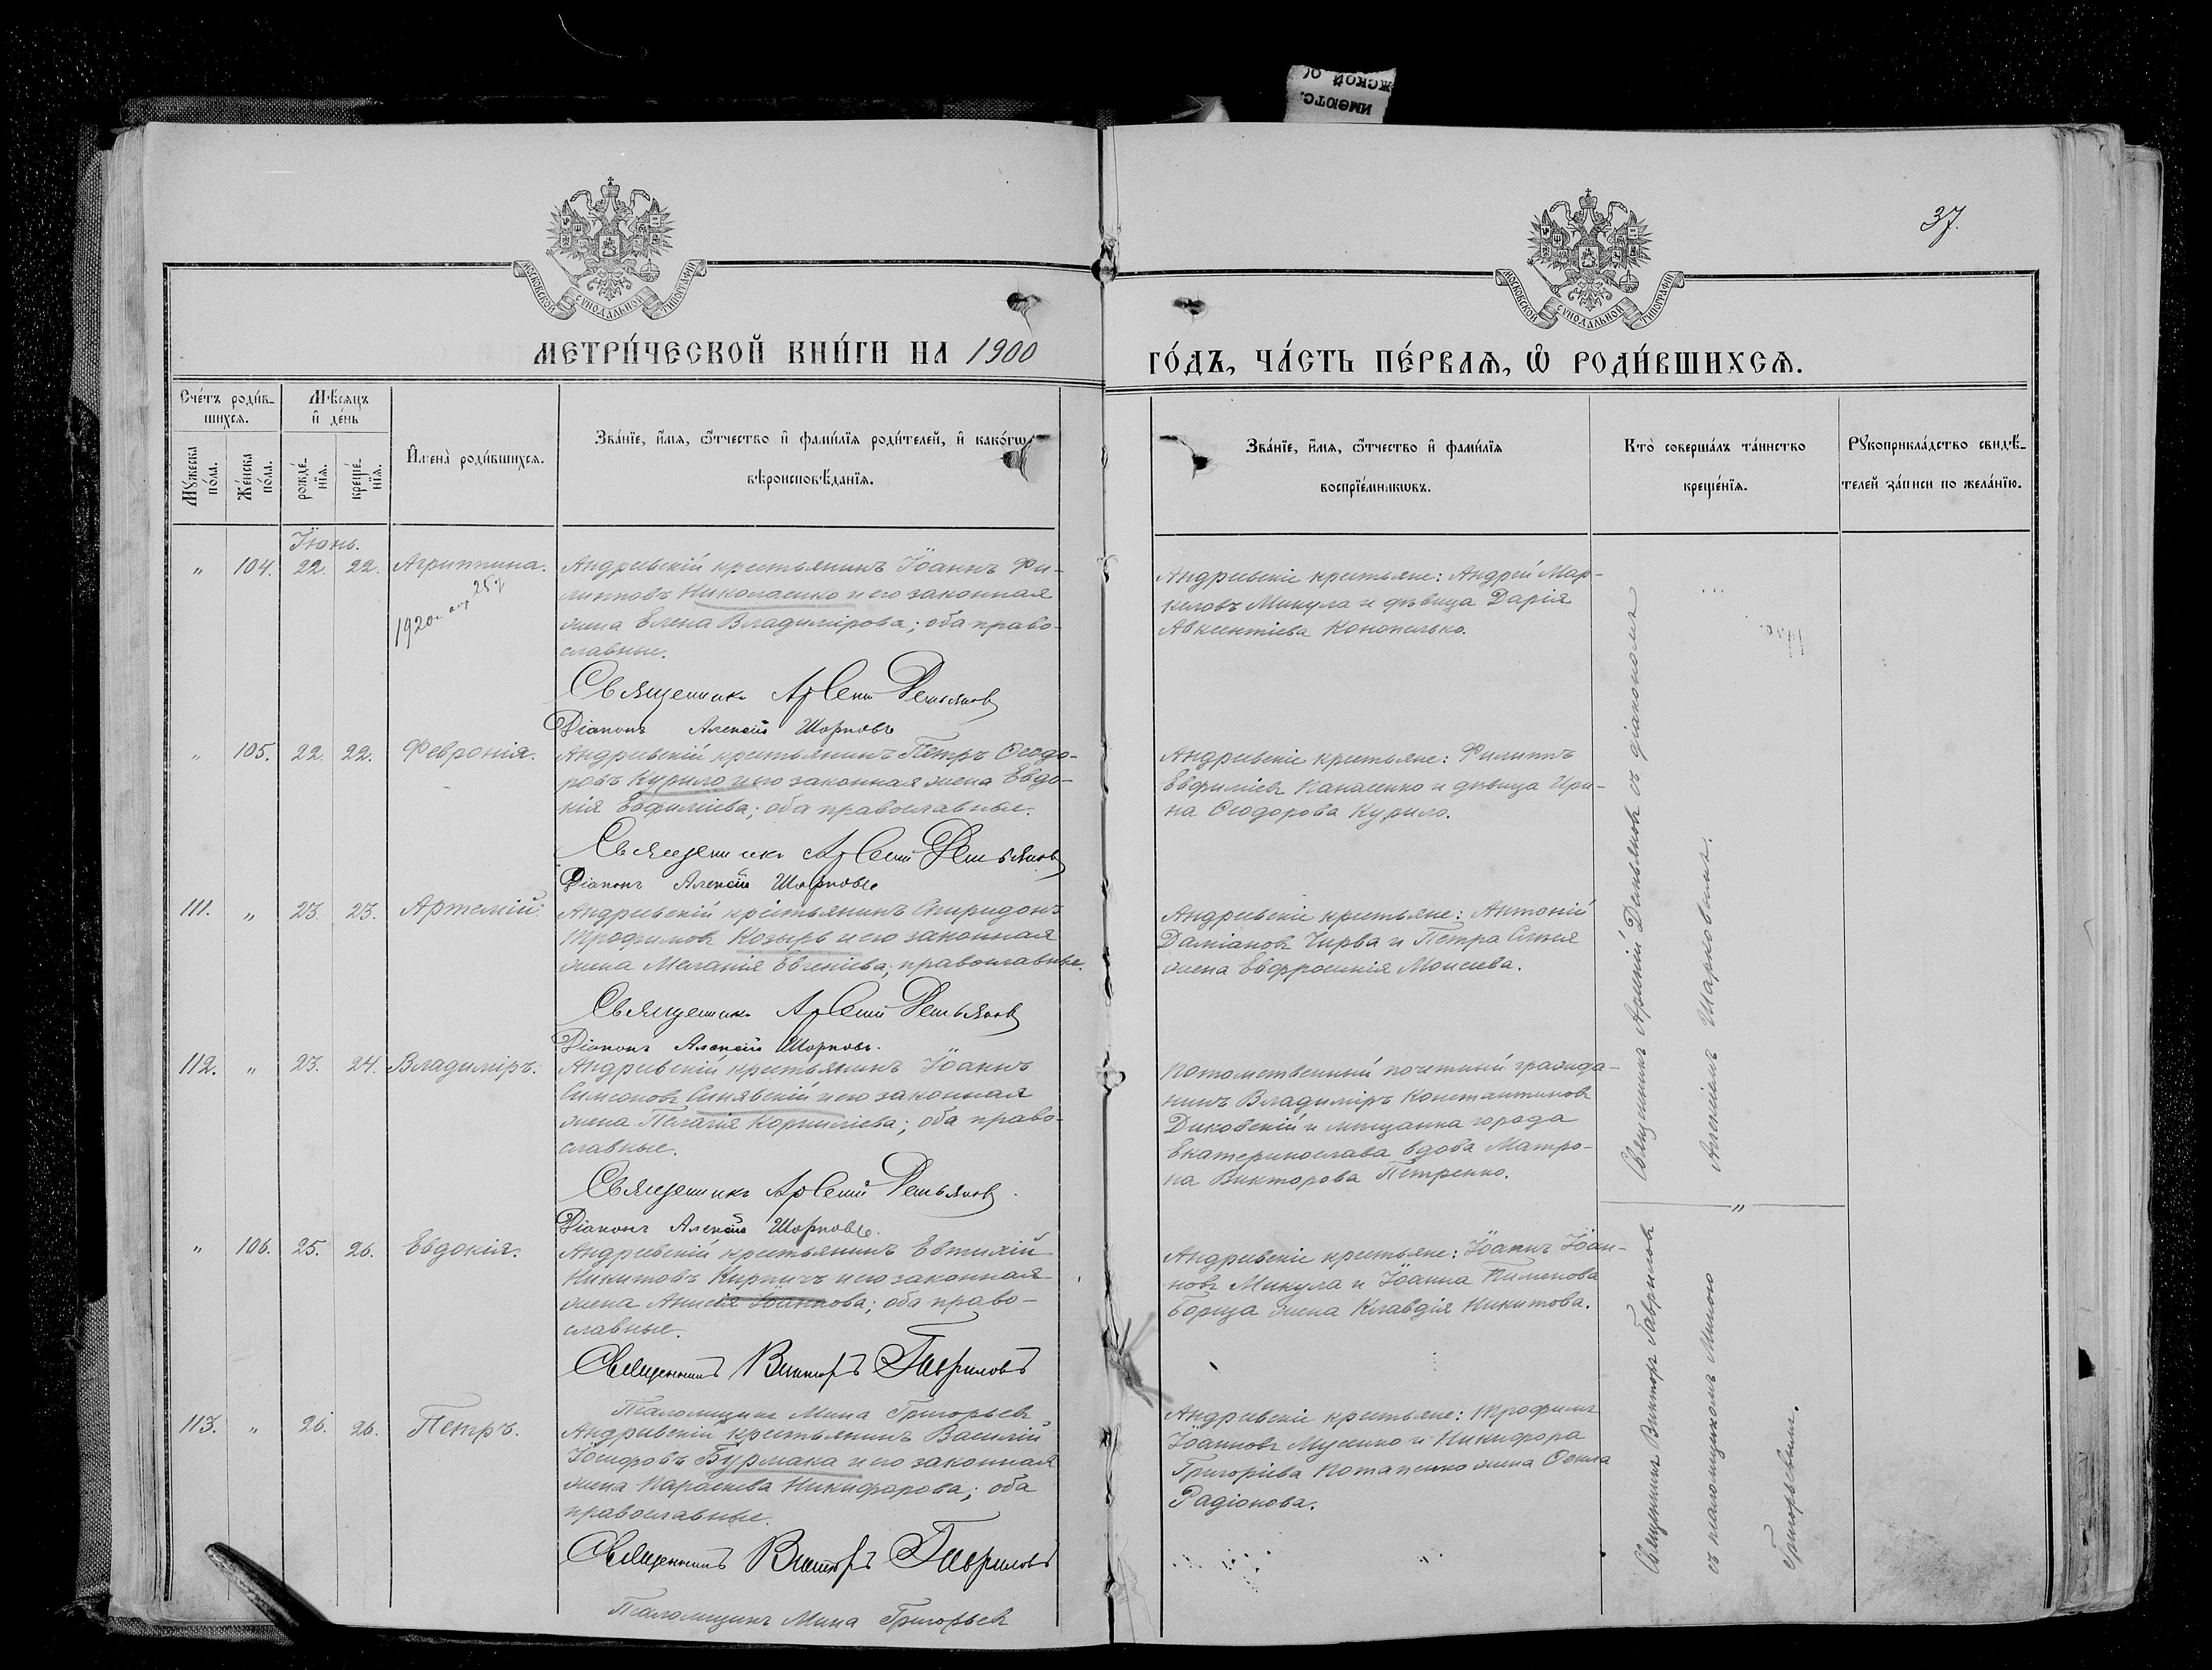 ИМЕЮТС.
ЖСКОЙ О
37.
МОСКОВСКОЙ СѴНОДАЛЬНОЙ ТИПОГРАФІИ
МОСКОВСКОЙ СѴНОДАЛЬНОЙ ТИПОГРАФІИ
МЕТРИ́ЧЕСКОЙ КНИ́ГИ НА 1900
ГО́ДЪ, ЧА́СТЬ ПЕ́РВАѦ, Ѡ҆ РОДИ́ВШИХСѦ.
Сче́тъ роди́в-
шихсѧ.
Мѣ́сяцъ
и҆ де́нь
Му́жеска
по́ла.
Же́нска
по́ла.
рожде́-
нїѧ.
креще́-
нїѧ.
И҆мена̀ роди́вшихсѧ.
Зва́нїе, и҆́мѧ, ѻ҆́тчество и҆ фами́лїѧ роди́телей, и҆ како́гѡ
вѣроисповѣ́данїѧ.
Зва́нїе, и҆́мѧ, ѻ҆́тчество и҆ фами́лїѧ
воспрїе́мникѡвъ.
Кто̀ соверша́лъ та́инство
креще́нїѧ.
Рꙋкоприкла́дство свидѣ́-
телей за́писи по жела́нїю.
Іюнь.
" 104. 22. 22. Агриппина.
1920 25
Андреевскій крестьянинъ Іоаннъ Фи-
липповъ Николаенко и его законная
жена Елена Владимірова; оба право-
славные.
Священникъ Арсеній Демьяновъ
Діаконъ Алексій Шарновъ
Андреевскіе крестьяне: Андрей Мар-
келовъ Микула и дѣвица Дарія
Авксентіева Конопелько.
" 105. 22. 22. Февронія.
Андреевскій крестьянинъ Петръ Ѳеодо-
ровъ Курило и его законная жена Евдо-
кія Евфиміева; оба православные.
Священникъ Арсеній Демьяновъ
Діаконъ Алексій Шарновъ
Андреевскіе крестьяне: Филиппъ
Евфиміевъ Панасенко и дѣвица Ири-
на Ѳеодорова Курило.
111. " 23. 23. Артемій.
Андреевскій крестьянинъ Спиридонъ
Трофимовъ Козырь и его законная
жена Меланія Евгеніева; православные.
Священникъ Арсеній Демьяновъ
Діаконъ Алексій Шарновъ.
Андреевскіе крестьяне: Антоній
Даміановъ Чирва и Петра
жена Евфросинія Моисеева.
112. " 23. 24. Владиміръ.
Андреевскій крестьянинъ Іоаннъ
Симеоновъ Синявскій и его законная
жена Пелагія Корниліева; оба право-
славные.
Священникъ Арсеній Демьяновъ.
Діаконъ Алексій Шарновъ.
Потомственный почетный гражда-
нинъ Владиміръ Константиновъ
Диковскій и мѣщанка города
Екатеринослава вдова Матро-
на Викторова Петренко.
" 106. 25. 26. Евдокія.
Андреевскій крестьянинъ Евтихій
Никитовъ Кирпичъ и его законная
жена Анисія Іоаннова; оба право-
славные.
Священникъ Викторъ Гавриловъ
Псаломщикъ Мина Григорьевъ
Андреевскіе крестьяне: Іоаннъ Іоан-
новъ Микула и Іоанна Пименова
Борща жена Клавдія Никитова.
113. " 26. 26. Петръ.
Андреевскій крестьянинъ Василій
Іосифовъ Бурмака и его законная
жена Параскева Никифорова; оба
православные.
Священникъ Викторъ Гавриловъ
Псаломщикъ Мина Григорьевъ
Андреевскіе крестьяне: Трофимъ
Іоанновъ Мусенко и Никифора
Григоріева Потапенко жена Ѳекла
Радіонова.
Священникъ Арсеній Демьяновъ съ діакономъ
Алексіемъ Шарновымъ.
"
Священникъ Викторъ Гавриловъ
съ псаломщикомъ Миною
Григорьевымъ.